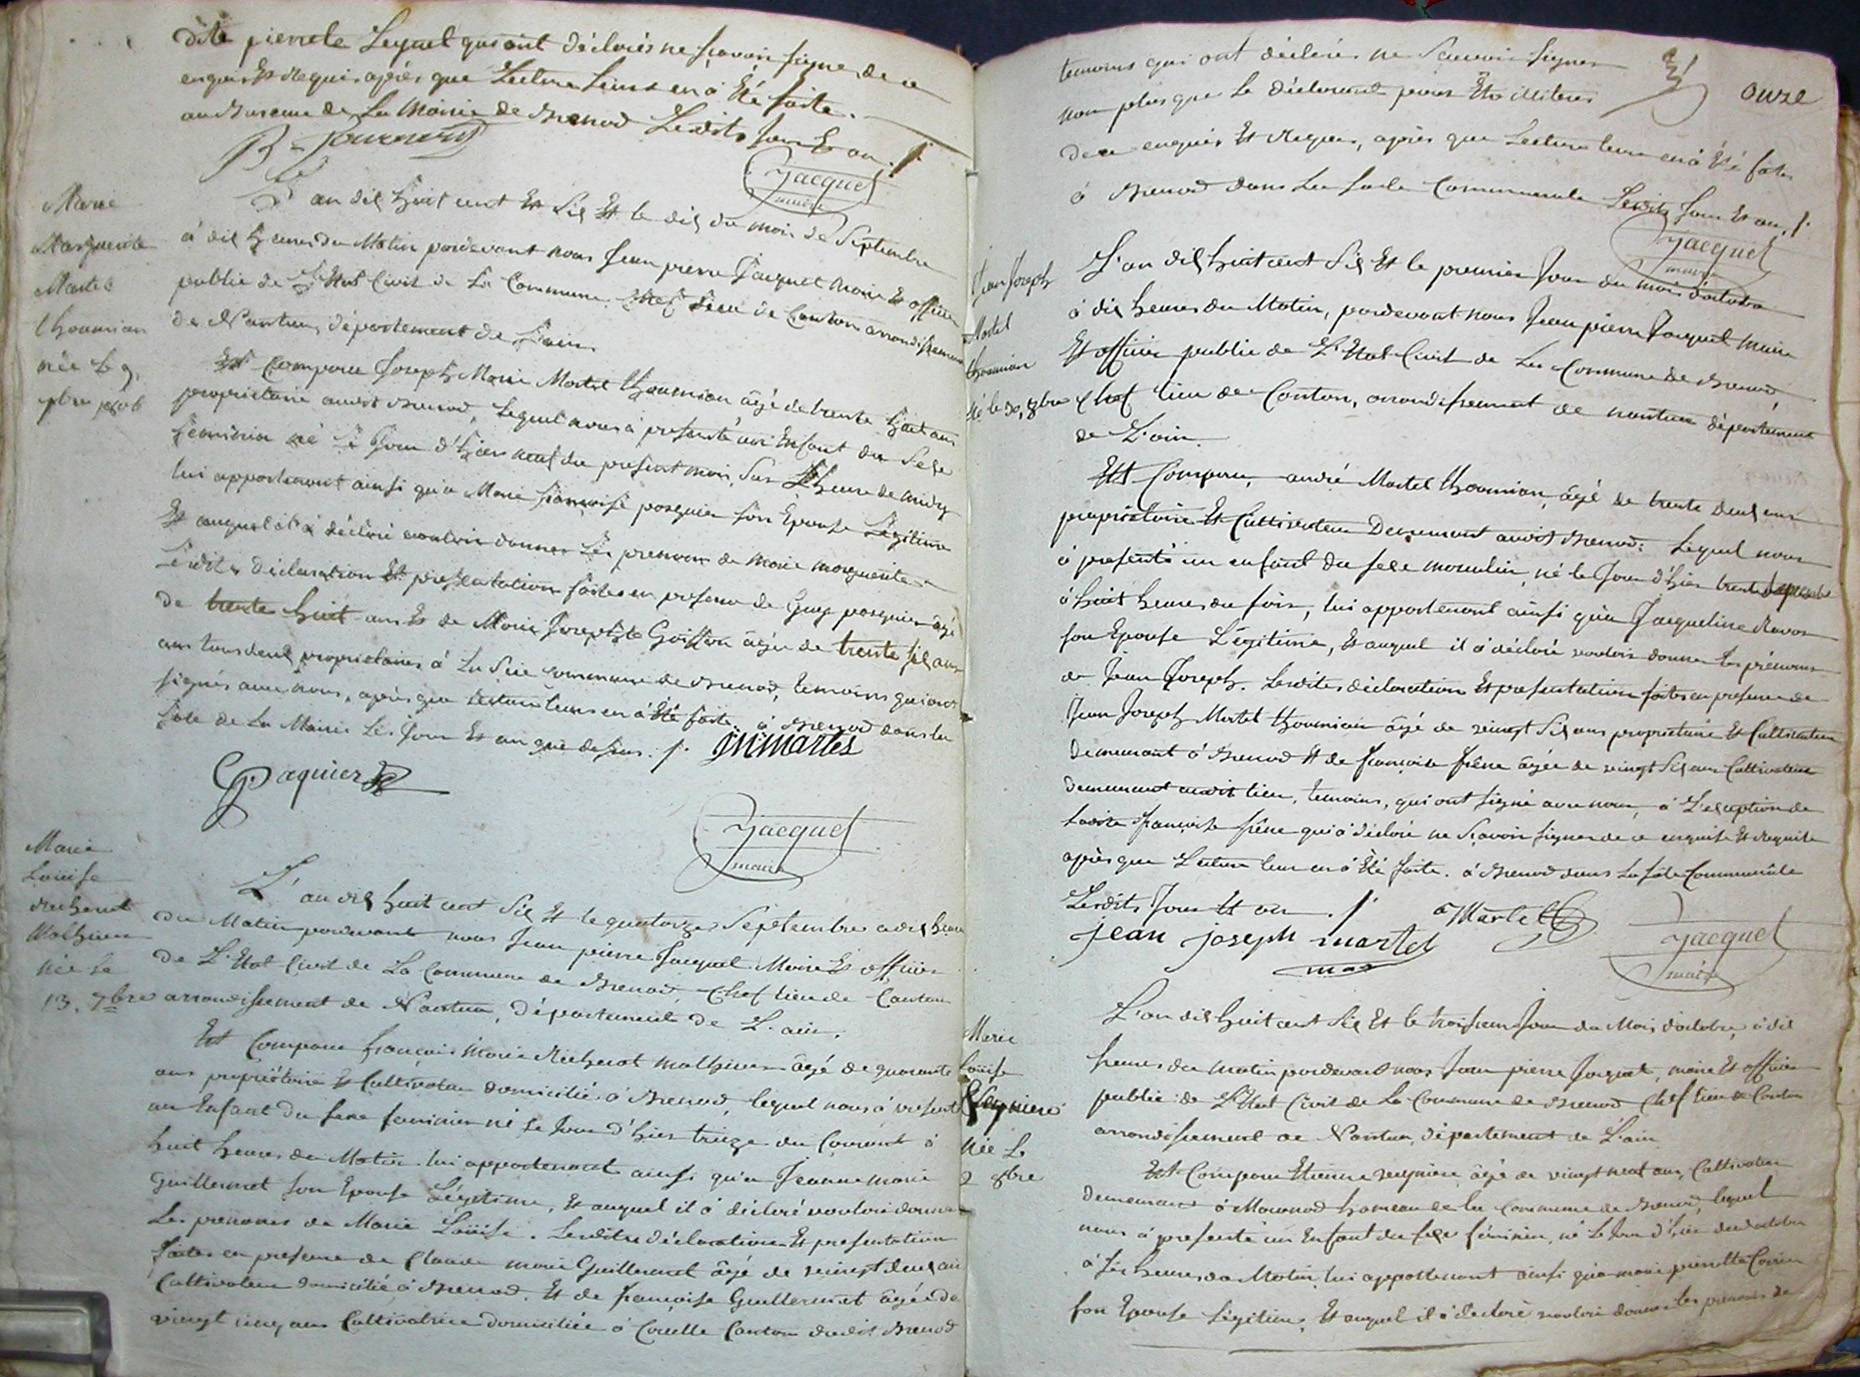 dite pierrete Lequel qui ont déclarés ne sçavoir signer de ce
enquis Et Requis après que Lecture Leurs en à Eté faite.
au Bureau de La Mairie de Brenod Lesdits Jour Et an ./.
Jacquet
maire
Marie
Marguerite
Martel
thoumian
née Le 9.
L'an dix huit cent Et Six Et le dix du mois de Septembre
à dix heures du Matin pardevant nous Jean pierre Jacquet Maire Et officier
public de L'Etat Civil de La Commune Chef Lieu de Canton arrondissement
de Nantua, département de L'ain.
Est Comparu Joseph Marie Martel thoumian âgé de trente huit ans
propriétaire audit Brenod, Lequel nous à présenté un Enfant du Sexe
féminin né Le Jour d'hier neuf du présent mois, Sur L'heure de midy
lui appartenant ainsi qu'a Marie françoise pasquier son Epouse Légitime
Et auquel il à déclaré vouloir donner Les prenoms de Marie Marguerite
Lesdites déclaration Et présentation faites en présence de Guy pasquier âgé
de trente huit ans Et de Marie Josephte Goiffon âgée de trente six ans
ans tous deux propriétaires à La Scie commune de Brenod, temoins qui ont
signés avec nous, après que Lecture Leurs en à Eté faite, à Brenod dans La
Sale de La Mairie Les Jour Et an que dessus ./. JM Martel
G Paquier
Jacquet
maire
Marie
Louise
Richerot
Mathieu
née Le
13. 7bre
L'an dix huit cent Six Et le quatorze Septembre a dix heures
du Matin pardevant nous Jean pierre Jacquet Maire Et officier
de L'Etat Civil de La Commune de Brenod, Chef lieu de Canton
arrondissement de Nantua, département de L'ain.
Est Comparu françois Marie Richerot mathieu âgé de quarante
ans propriétaire Et Cultivateur domicilié à Brenod, lequel nous à présenté
un Enfant du sexe féminin né Le Jour d'hier treize du Courant à
huit heures du Matin lui appartenant ainsi qu'a Jeanne Marie
Guillermet son Epouse Légitime, Et auquel il à déclaré vouloir donner
Les prenoms de Marie Loüise. Lesdites déclaration Et présentation
faites en présence de Claude marie Guillermet âgé de vingt deux ans
Cultivateur domicilié à Brenod, Et de françoise Guillermet âgée de
vingt cinq ans Cultivatrice domiciliée à Corcelle Canton dudit Brenod
onze
temoins qui ont déclarés ne Scavoir Signer
non plus que Le déclarant pour Etre illiterés
de ce enquis Et Requis, après que Lecture leur en à Eté faite
à Brenod dans La Sale Communale Lesdits Jour Et an ./.
Jacquet
maire
Jean Joseph
Martel
thoumian
né le 30. 7bre
L'an dix huit cent Six Et le premier Jour du mois d'octobre
à dix heures du Matin, pardevant nous Jean pierre Jacquet maire
Et officier public de L'Etat Civil de La Commune de Brenod,
Chef lieu de Canton, arrondissement de nantua département
de L'ain.
Est Comparu, andré Martel thoumian, âgé de trente deux ans
propriétaire Et Cultivateur Demeurant audit Brenod: Lequel nous
à présenté un enfant du sexe masculin, né le Jour d'hier trente Septembre
à huit heures du soir, lui appartenant ainsi qu'a Jacqueline Ravos
son Epouse Légitime, Et auquel il à déclaré vouloir donner les prénoms
de Jean Joseph. Lesdites déclaration Et présentation faites en présence de
Jean Joseph Martel thoumian âgé de vingt Six ans propriétaire Et Cultivateur
demeurant à Brenod Et de françoise frêne âgée de vingt Six ans Cultivatrice
demeurant audit lieu, temoins, qui ont signé avec nous, à L'exception de
Ladite françoise frêne qui à déclaré ne Sçavoir signer de ce enquise Et Requise
après que Lecture leur en à Eté faite. à Brenod dans La Sale Communale
Lesdits Jour Et an ./. a Martel
jean joseph martel
Jacquet
maire
Marie
Loüise
Reyniere
Née Le
2 8bre
L'an dix huit cent Six Et le troisieme Jour du Mois d'octobre, à dix
heures du matin pardevant nous Jean pierre Jacquet, maire Et officier
public de L'Etat Civil de La Commune de Brenod Chef lieu de Canton
arrondissement de Nantua, département de L'ain
Est Comparu Etienne reyniere âgé de vingt neuf ans, Cultivateur
demeurant à Macconod hameau de la Commune de Brenod, lequel
nous à présenté un Enfant du sexe féminin, né Le Jour d'hier deux octobre
à Six heures du Matin, lui appartenant ainsi qu'a marie pierrette
son Epouse Légitime, Et auquel il à déclaré vouloir donner les prenoms de